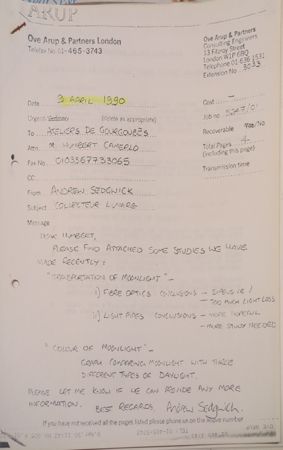 ARUP
Ove Arup & Partners London
Telefax No 01-465-3743
Ove Arup & Partners
Consulting Engineers
13 Fitzroy Street
London W1P 6BQ
Telephone 01-636 1531
Extension No 3033
Date 3 APRIL 1990
Cost —
Urgent/Ordinary (delete as appropriate)
Job no
To ATELIERS DE GOURGOUBÈS
Recoverable Yes/No
Attn M. HUMBERT CAMERLO
Total Pages 4
(including this page)
Fax No 01033567733065
Transmission time
CC
From ANDREW SEDGWICK
Subject COLLECTEUR LUNAIRE
Message
DEAR HUMBERT,
PLEASE FIND ATTACHED SOME STUDIES WE HAVE
MADE RECENTLY:
"TRANSPORTATION OF MOONLIGHT" -
i) FIBRE OPTICS CONCLUSIONS -
TOO MUCH LIGHT LOSS
ii) LIGHT PIPES CONCLUSIONS - MORE HOPEFUL
- MORE STUDY NEEDED
"COLOUR OF MOONLIGHT" -
GRAPH COMPARING MOONLIGHT WITH THREE
DIFFERENT TYPES OF DAYLIGHT.
PLEASE LET ME KNOW IF WE CAN PROVIDE ANY MORE
INFORMATION. BEST REGARDS, Andrew Sedgwick.
If you have not received all the pages listed please phone on the above number